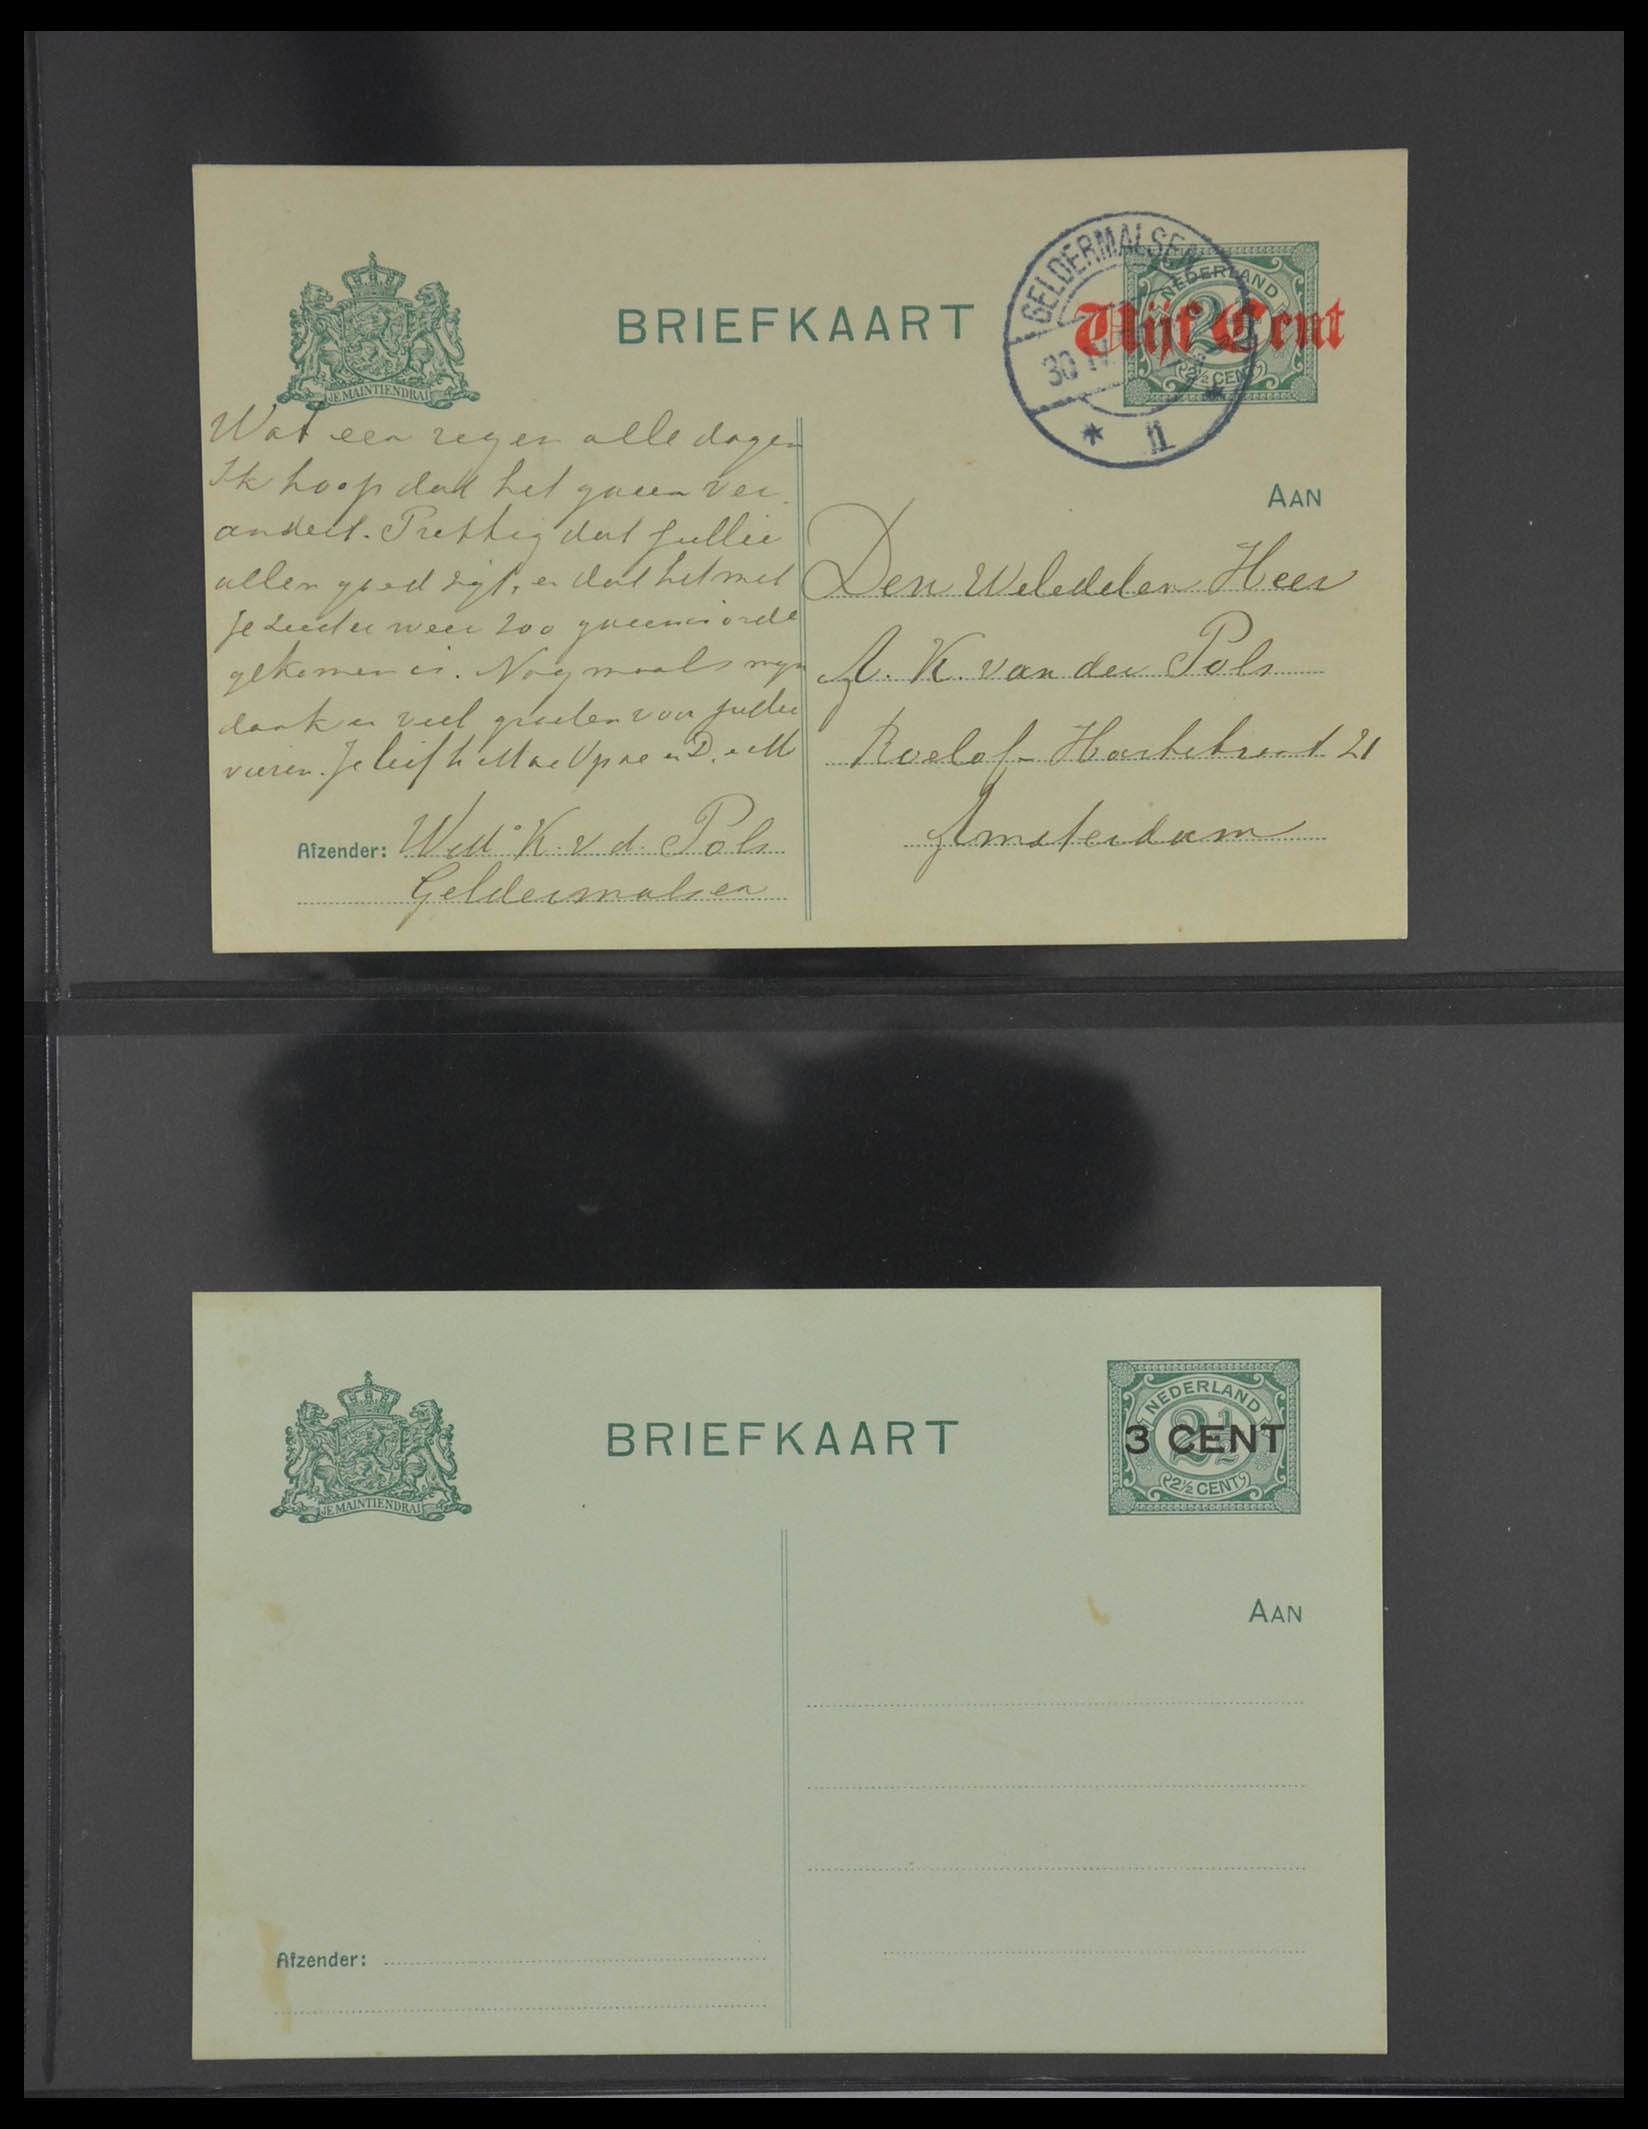 JE MAINTIENDRAI
BRIEFKAART
GELDERMALSEN
30 IV
11
NEDERLAND
2½ CENT
Vijf Cent
Wat een regen alle dagen
Ik hoop dat het gauw ver
andert. Prettig dat jullie
allen goed zijt, en dat het met
je zuster weer zoo gauw in orde
gekomen is. Nogmaals mijn
dank en veel groeten voor jullie
vieren. Je liefh. Moe Opoe en D. en M
Afzender: Wed° K. v d. Pols
Geldermalsen
AAN
Den Weledelen Heer
A. K. van der Pols
Roelof Hartstraat 21
Amsterdam
JE MAINTIENDRAI
BRIEFKAART
NEDERLAND
2½
3 CENT
2½ CENT
AAN
Afzender: